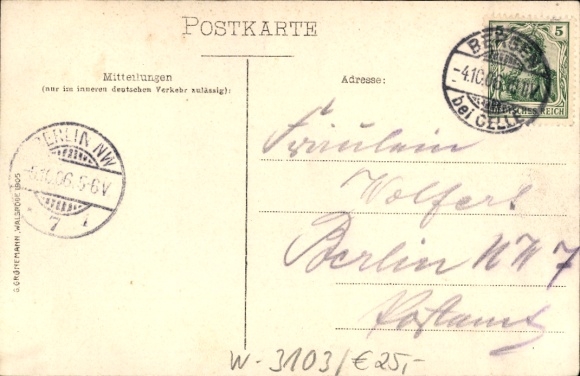 POSTKARTE
Mitteilungen
(nur im inneren deutschen Verkehr zulässig):
Adresse:
5
DEUTSCHES REICH
BERGEN
-4.10.06
bei CELLE
BERLIN NW
5-6V
7
G. GRÖNEMANN, WALSRODE 1905
Fräulein
Wolfert
Berlin NW 7
Postamt
W-3103/€25,-